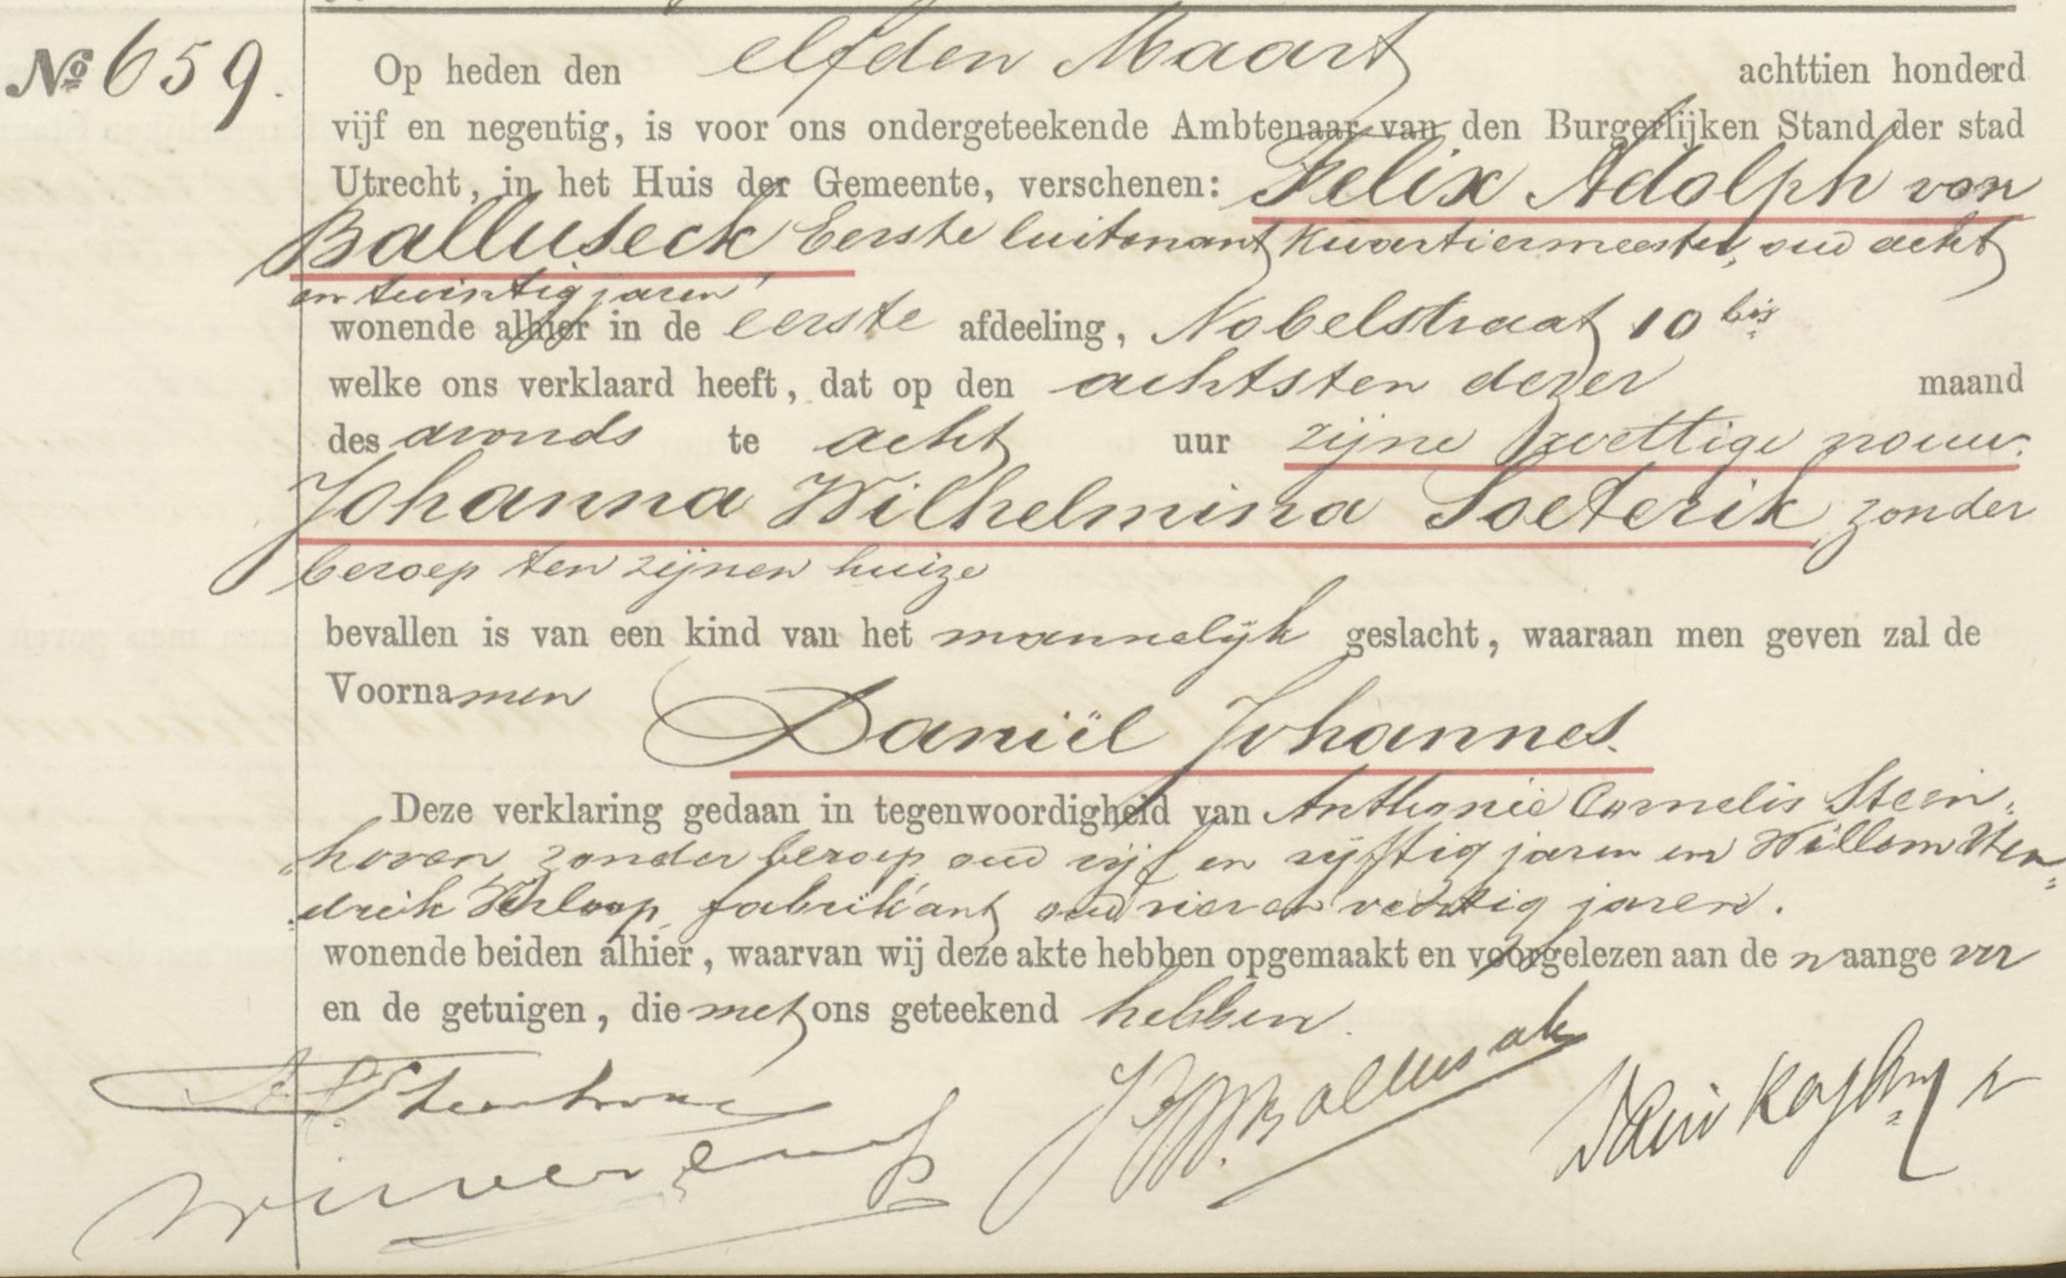 № 659.
Op heden den elfden Maart achttien honderd
vijf en negentig, is voor ons ondergeteekende Ambtenaar van den Burgerlijken Stand der stad
Utrecht, in het Huis der Gemeente, verschenen: Felix Adolph von
Balluseck Eerste luitenant kwartiermeester, oud acht
en twintig jaren
wonende alhier in de eerste afdeeling, Nobelstraat 10 bis
welke ons verklaard heeft, dat op den achtsten dezer maand
des avonds te acht uur zijne wettige vrouw
Johanna Wilhelmina Soeterik zonder
beroep ten zijnen huize
bevallen is van een kind van het mannelijk geslacht, waaraan men geven zal de
Voornamen
Daniël Johannes.
Deze verklaring gedaan in tegenwoordigheid van Anthonie Cornelis Steen=
hoven zonder beroep oud vijf en vijftig jaren en Willem Hen=
drik Verloop, fabrikant oud vier en veertig jaren.
wonende beiden alhier, waarvan wij deze akte hebben opgemaakt en voorgelezen aan de n aange ver
en de getuigen, die met ons geteekend hebben.